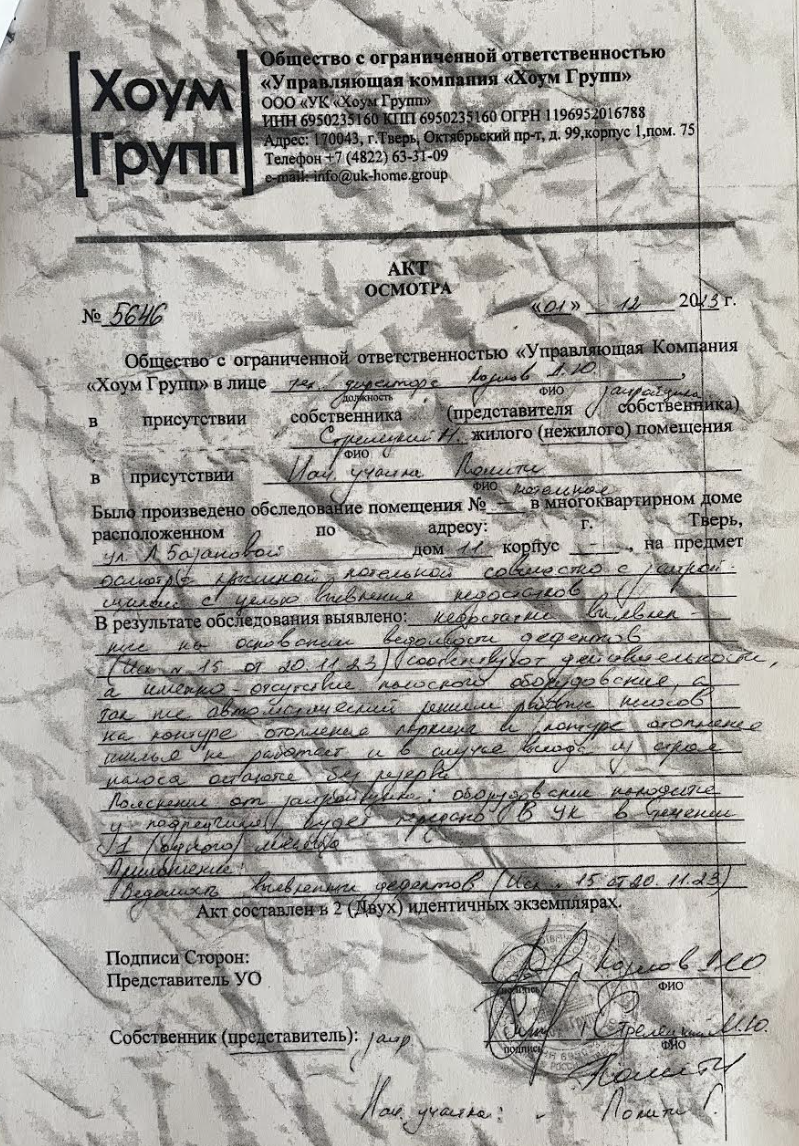 Хоум
Групп
Общество с ограниченной ответственностью
«Управляющая компания «Хоум Групп»
ООО «УК «Хоум Групп»
ИНН 6950235160 КПП 6950235160 ОГРН 1196952016788
Адрес: 170043, г.Тверь, Октябрьский пр-т, д. 99,корпус 1,пом. 75
Телефон +7 (4822) 63-31-09
e-mail: info@uk-home.group
АКТ
ОСМОТРА
№ 5646 «01» 12 2023 г.
Общество с ограниченной ответственностью «Управляющая Компания
«Хоум Групп» в лице тех. директора Козлов А.Ю.
должность ФИО застройщика
в присутствии собственника (представителя собственника)
Стрелецкий М. жилого (нежилого) помещения
ФИО
в присутствии Нач. участка
ФИО котельная
Было произведено обследование помещения № - в многоквартирном доме
расположенном по адресу: г. Тверь,
ул. Л Базановой дом 11 корпус -, на предмет
осмотра крышной котельной совместно с застрой-
щиком с целью выявления недостатков
В результате обследования выявлено: недостатки выявлен-
ные на основании ведомости дефектов
(Исх № 15 от 20.11.23) соответствуют действительности,
а именно - отсутствие насосного оборудования, а
так же автоматический режим работы насосов
на контуре отопления паркинг и контуре отопление
жилья не работает и в случае выхода из строя
насоса остаются без резерва
Пояснения от застройщика: оборудование находится
у подрядчика, будет передано в УК в течении
1 (одного) месяца
Приложение:
Ведомость выявленных дефектов (Исх № 15 от 20.11.23)
Акт составлен в 2 (Двух) идентичных экземплярах.
Подписи Сторон:
Представитель УО Козлов А.Ю
подпись ФИО
Собственник (представитель): застр. Стрелецкий М.Ю.
подпись ФИО
Нач. участка: